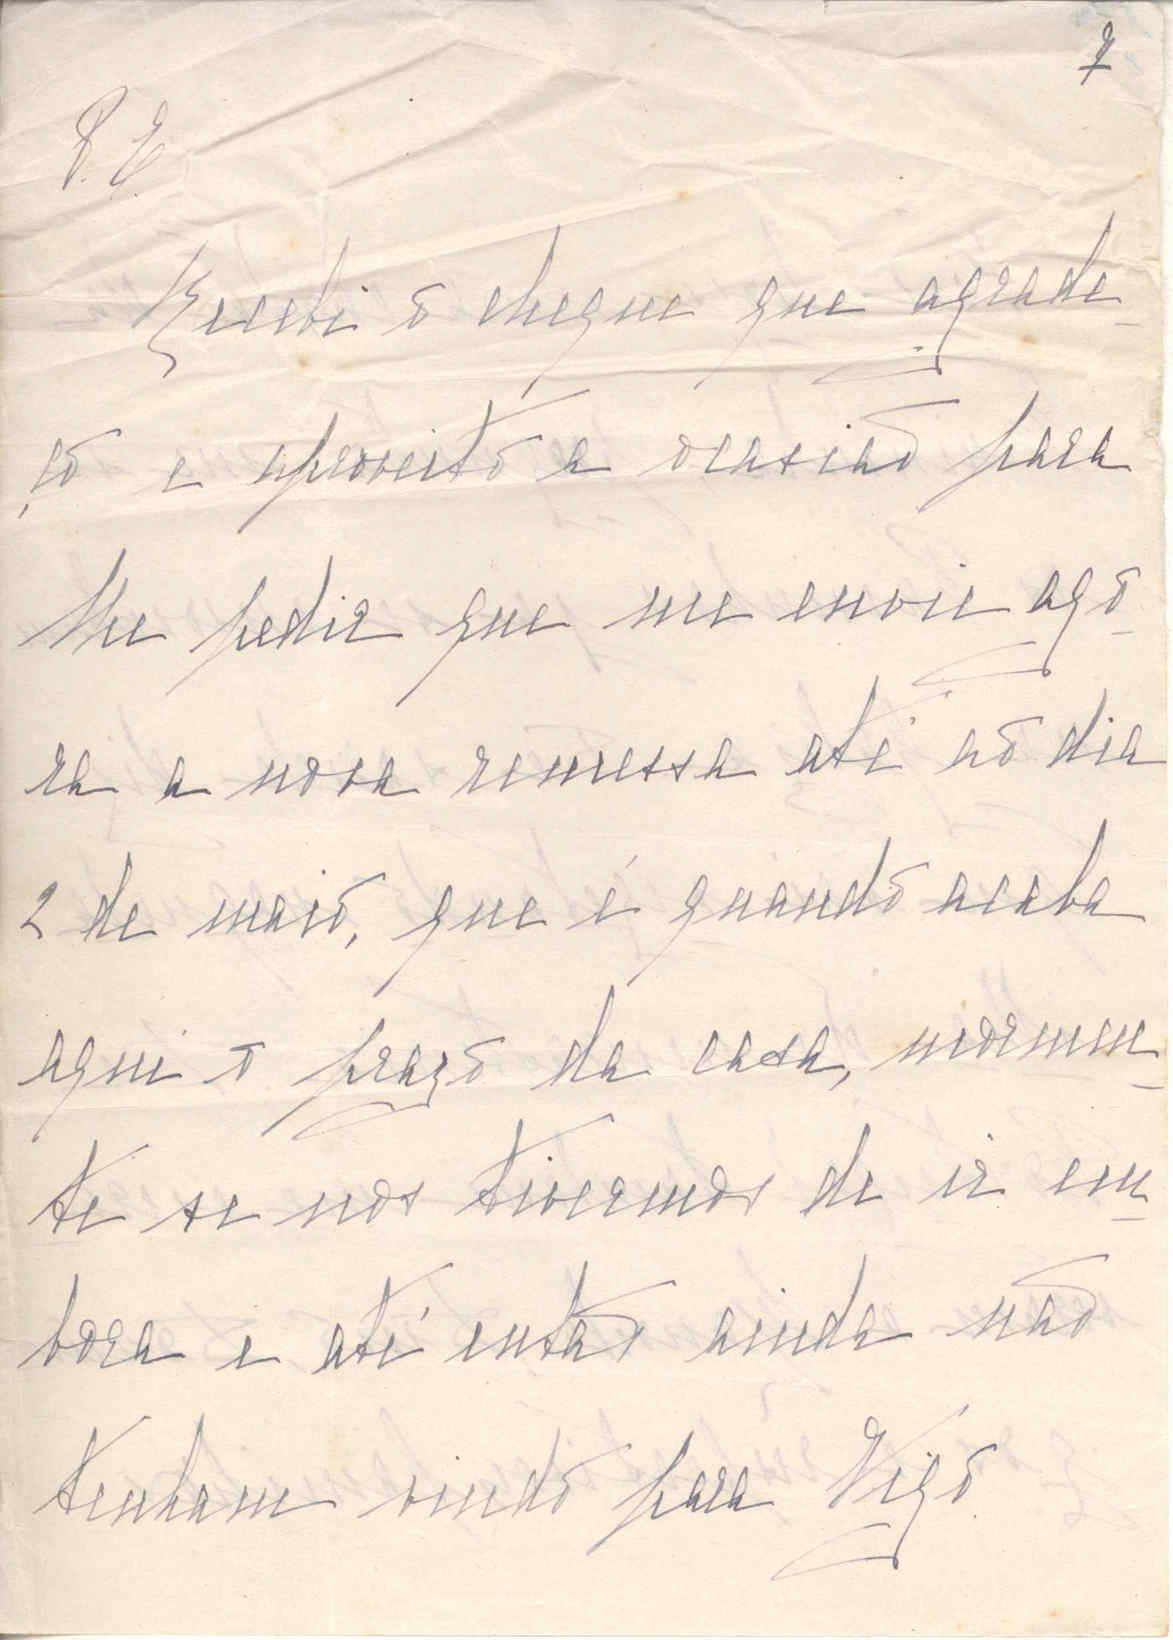 7
P. E.
Recebi o cheque que agrade-
ço e aproveito a ocasião para
lhe pedir que me envie ago-
ra a nova remessa até ao dia
2 de maio, que é quando acaba
aqui o prazo da casa, mórmen-
te se nos tivermos de ir em-
bora e até então ainda não
tenham vindo para Vigo.